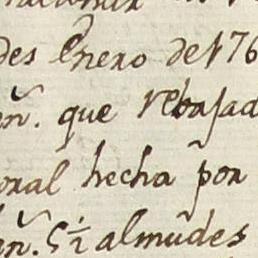 des Enero de 176
ñ. que rebajad
oral hecha p̃or
ñ. 5½ almũdes